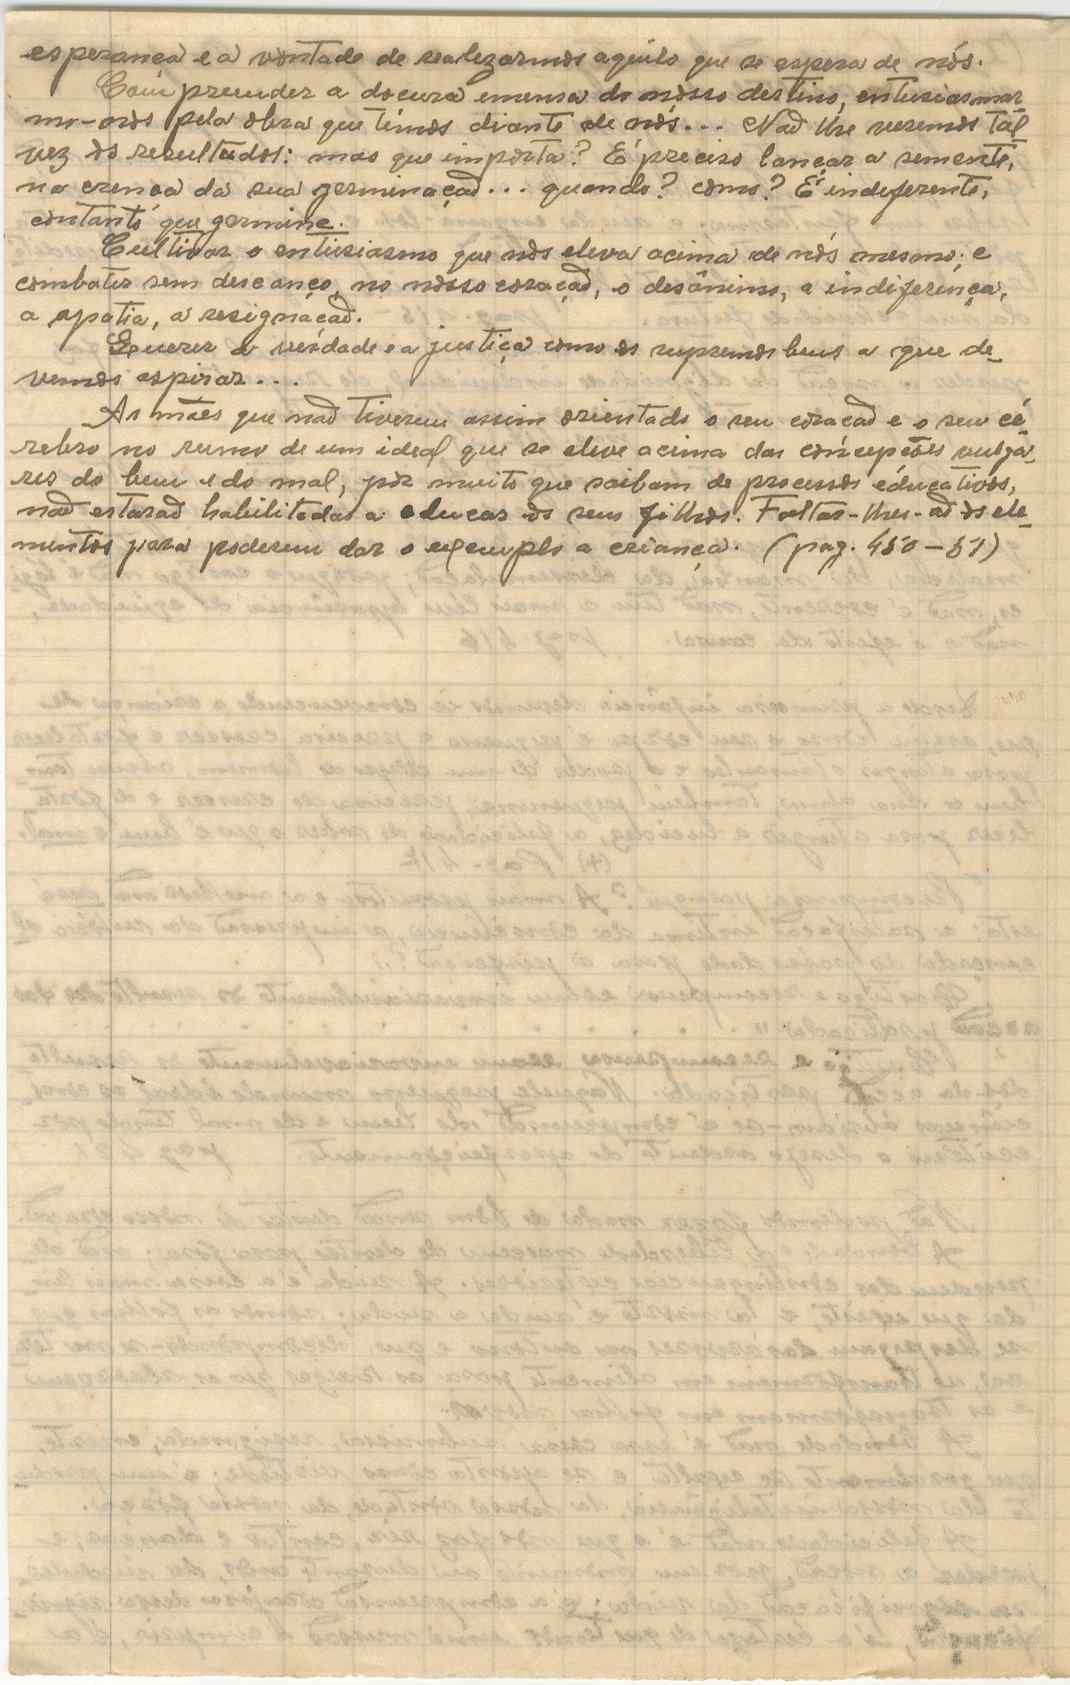 esperança e a vontade de realizarmos aquilo que se espera de nós.
Compreender a doçura imensa do nosso destino, entusiasmar
mo-nos pela obra que temos diante de nós... Não lhe veremos tal
vez os resultados: mas que importa? É preciso lançar a semente,
na crença da sua germinação... quando? como? É indiferente,
contanto que germine.
Cultivar o entusiasmo que nos eleva acima de nós mesmo; e
combater sem descanço, no nosso coração, o desânimo, a indiferença,
a apatia, a resignação.
Querer a verdade e a justiça como os supremos bens a que de-
vemos aspirar...
As mães que não tiverem assim orientado o seu coração e o seu cé-
rebro no rumo de um ideal que se eleve acima das concepções vulga-
res do bem e do mal, por muito que saibam de processos educativos,
não estarão habilitadas a educar os seus filhos. Faltar-lhes-ão os ele-
mentos para poderem dar o exemplo a criança. (pag. 450-51)